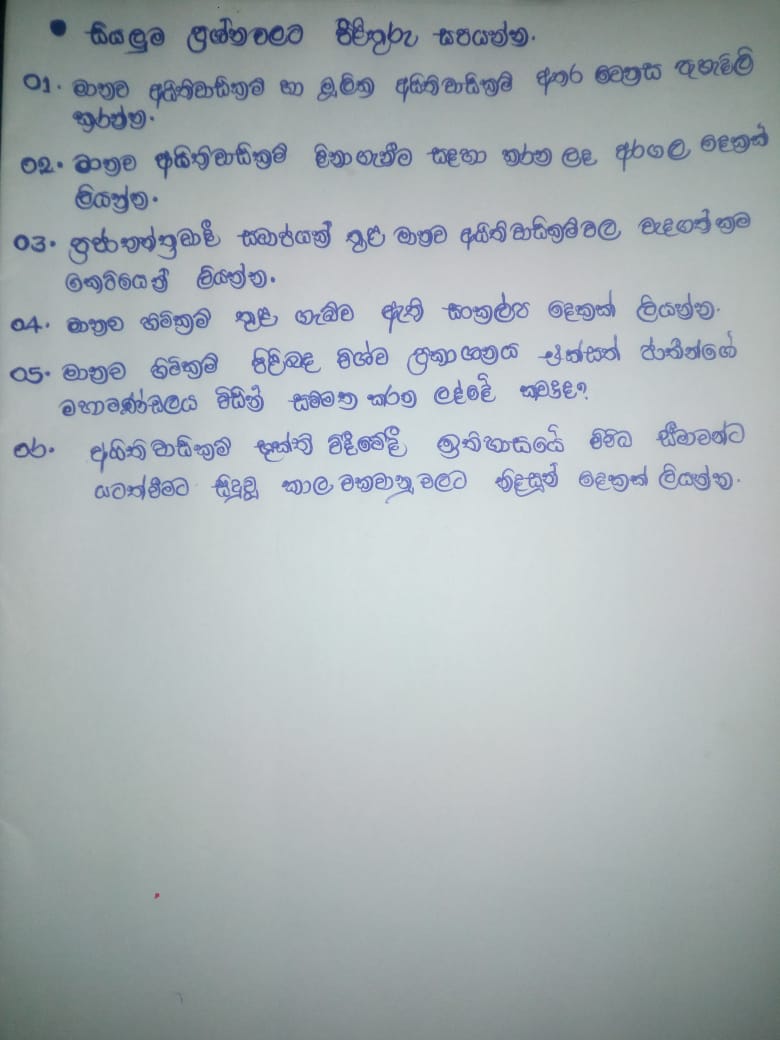 • සියලුම ප්‍රශ්නවලට පිළිතුරු සපයන්න.
01. මානව අයිතිවාසිකම් හා මූලික අයිතිවාසිකම් අතර වෙනස පැහැදිලි
කරන්න.
02. මානව අයිතිවාසිකම් දිනාගැනීම සඳහා කරන ලද අරගල දෙකක්
ලියන්න.
03. ප්‍රජාතන්ත්‍රවාදී සමාජයක් තුළ මානව අයිතිවාසිකම්වල වැදගත්කම
කෙටියෙන් ලියන්න.
04. මානව හිමිකම් තුළ ගැබ්ව ඇති සංකල්ප දෙකක් ලියන්න.
05. මානව හිමිකම් පිළිබඳ විශ්ව ප්‍රකාශනය එක්සත් ජාතීන්ගේ
මහාමණ්ඩලය විසින් සම්මත කරන ලද්දේ කවදාද?
06. අයිතිවාසිකම් භුක්ති විඳීමේදී ඉතිහාසයේ විවිධ සීමාවන්ට
යටත්වීමට සිදුවූ කාල වකවානු වලට නිදසුන් දෙකක් ලියන්න.